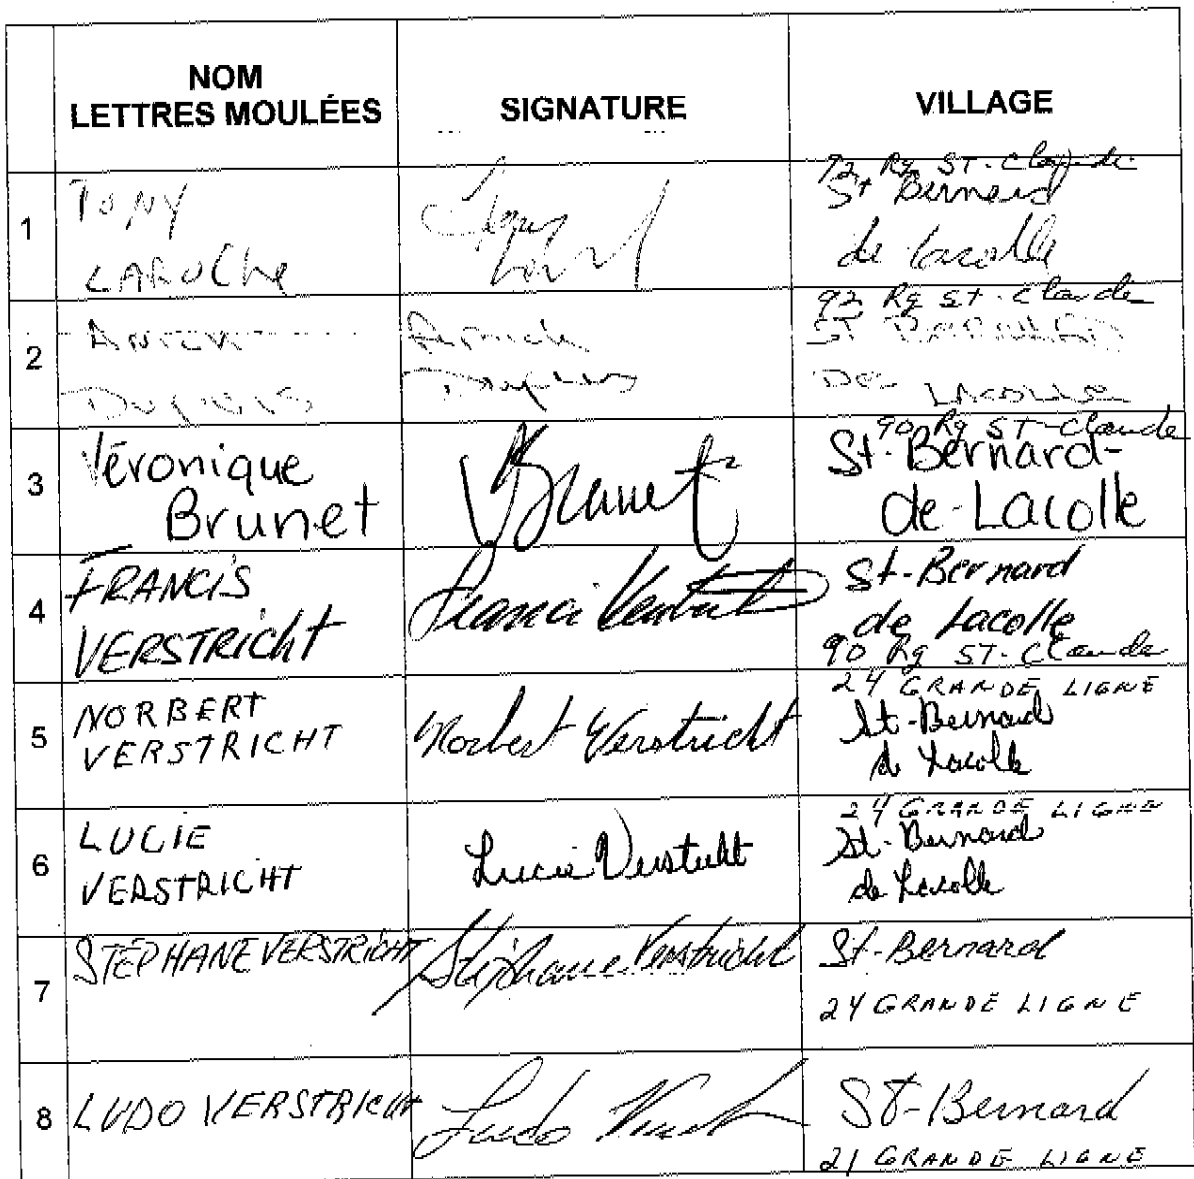 NOM
LETTRES MOULÉES
SIGNATURE
VILLAGE
1
TONY
LAROCHE
Tony
72 Rg ST-Claude
St Bernard
de Lacolle
2
Dupuis
Dupuis
92 Rg St-Claude
ST
De Lacolle
3
Véronique
Brunet
VBrunet
90 Rg ST-Claude
St-Bernard-
de-Lacolle
4
FRANCIS
VERSTRICHT
Francis Verstricht
St-Bernard
de Lacolle
90 Rg ST-Claude
5
NORBERT
VERSTRICHT
Norbert Verstricht
24 GRANDE LIGNE
St-Bernard
de Lacolle
6
LUCIE
VERSTRICHT
Lucie Verstricht
24 GRANDE LIGNE
St-Bernard
de Lacolle
7
STÉPHANE VERSTRICHT
Stéphane Verstricht
St-Bernard
24 GRANDE LIGNE
8
LUDO VERSTRICHT
Ludo
ST-Bernard
21 GRANDE LIGNE